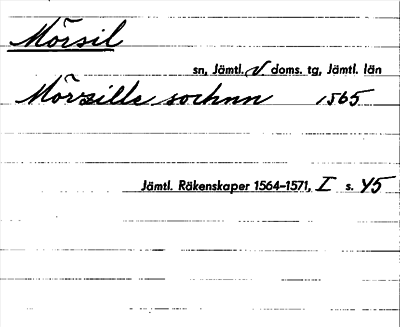 Mörsil
sn, Jämtl. V doms. tg, Jämtl. län
Mörsills sochnn 1565
Jämtl. Räkenskaper 1564–1571, I s. 45